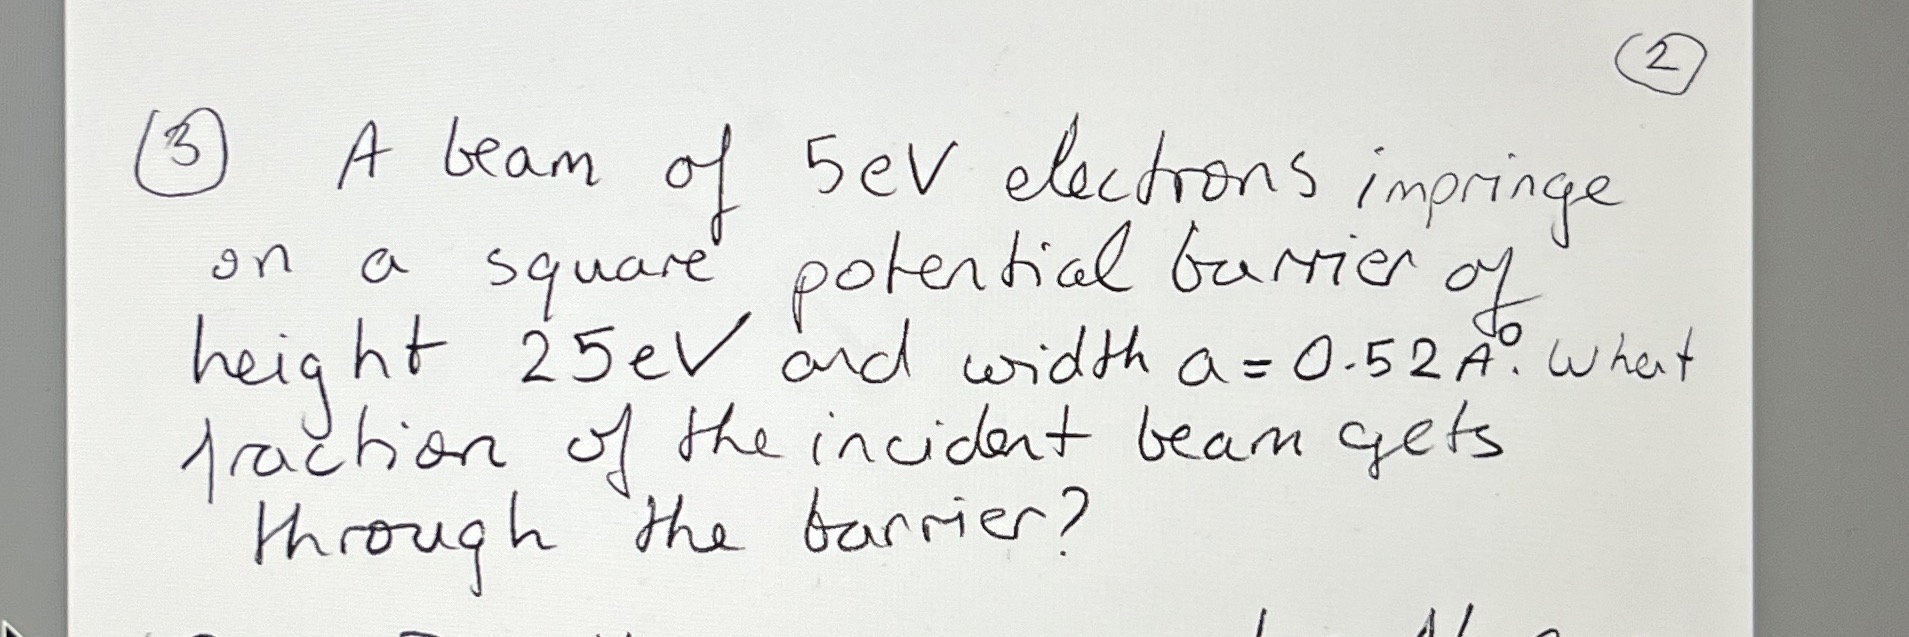 2
3 A beam of 5eV electrons impringe
on a square potential barrier of
height 25eV and width a = 0.52 A°. What
fraction of the incident beam gets
through the barrier?